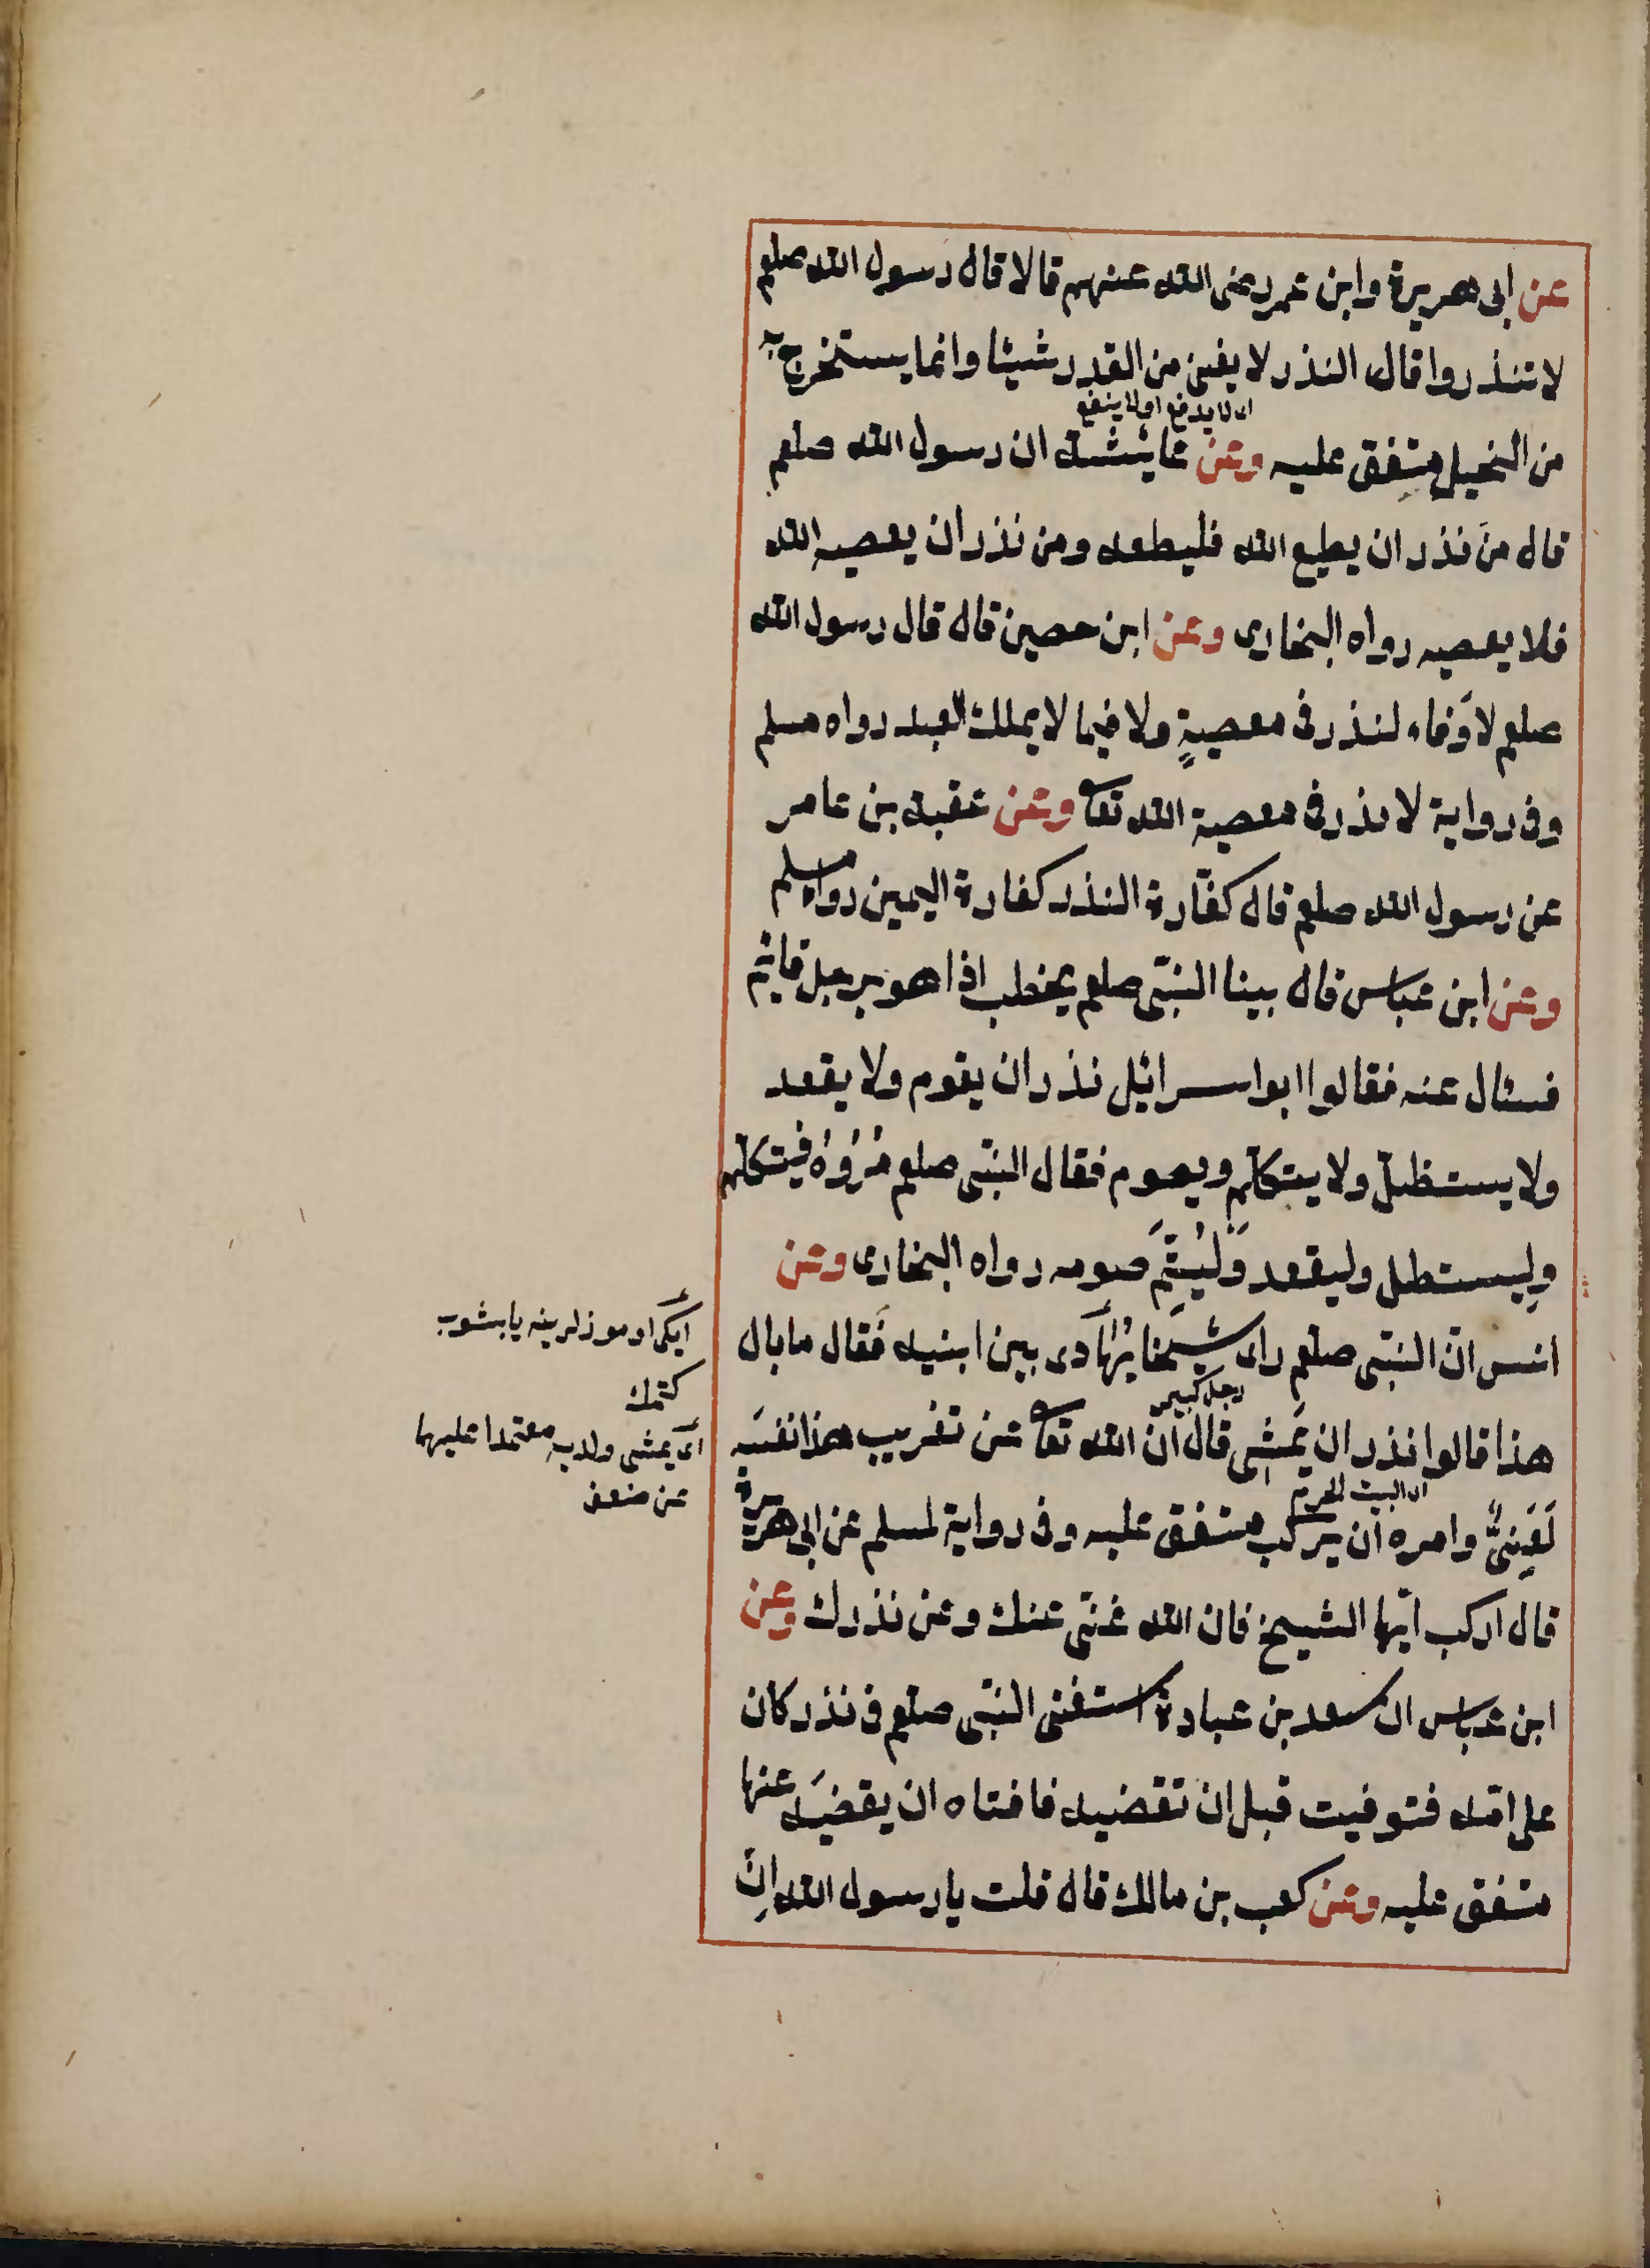 عن ابى هريرة وابن عمر رضى الله عنهم قالا قال رسول الله صلعم
لا تنذروا قال النذر لا يغنى من القدر شيئا وانما يستخرج به
اى لا يدفع اولا ينفع
من البخيل متفق عليه وعن عايشة ان رسول الله صلعم
قال منَ نذر ان يطيع الله فليطعه ومن نذر ان يعصيه الله
فلا يعصيه رواه البخارى وعن ابن حصين قال قال رسول الله
صلعم لا وَفاء لنذر فى معصيةٍ ولا فيما لا يملك العبد رواه مسلم
وفى رواية لا نذر فى معصية الله تعا وعن عقبة بن عامر
عن رسول الله صلعم قال كفّارة النذر كفارة اليمين رواه مسلم
وعن ابن عباس قال بينا النبّى صلعم يخطب اذا هو برجل قائم
فسئال عنه فقالوا ابو اسرائيل نذر ان يقوم ولا يقعد
ولا يستظلّ ولا يتكلّم ويصوم فقال النبّى صلعم مُرُوُهُ فيتكلّم
وليستظل وليقعد وَليُتِمَّ صومه رواه البخارى وعن
انس انّ النبّى صلعم راى شيخا يُهَادَى بين ابنيه فَقال ما بال
رجل كبير
هذا قالوا نذر ان يَمشِى قال انّ الله تعا عن تعذيب هذا نفسَه
اى البيت الحرم
لَغَنِىٌّ وامره ان يركب متفق عليه وفى رواية لمسلم عن ابى هريرة
قال اركب ايّها الشيخ فان الله غنّى عنك وعن نذرك وعن
ابن عباس ان سعد بن عبادة استفتى النبّى صلعم فى نذر كان
على امّه فتوفيت قبل ان تقضيه فافتاه ان يقضيَه عنها
متفق عليه وعن كعب بن مالك قال قلت يا رسول الله اِنّ
ايكى اوموزلرينه يابشوب
كتمك
اى يمشى ولديه معتمدا عليهما
عن ضعف